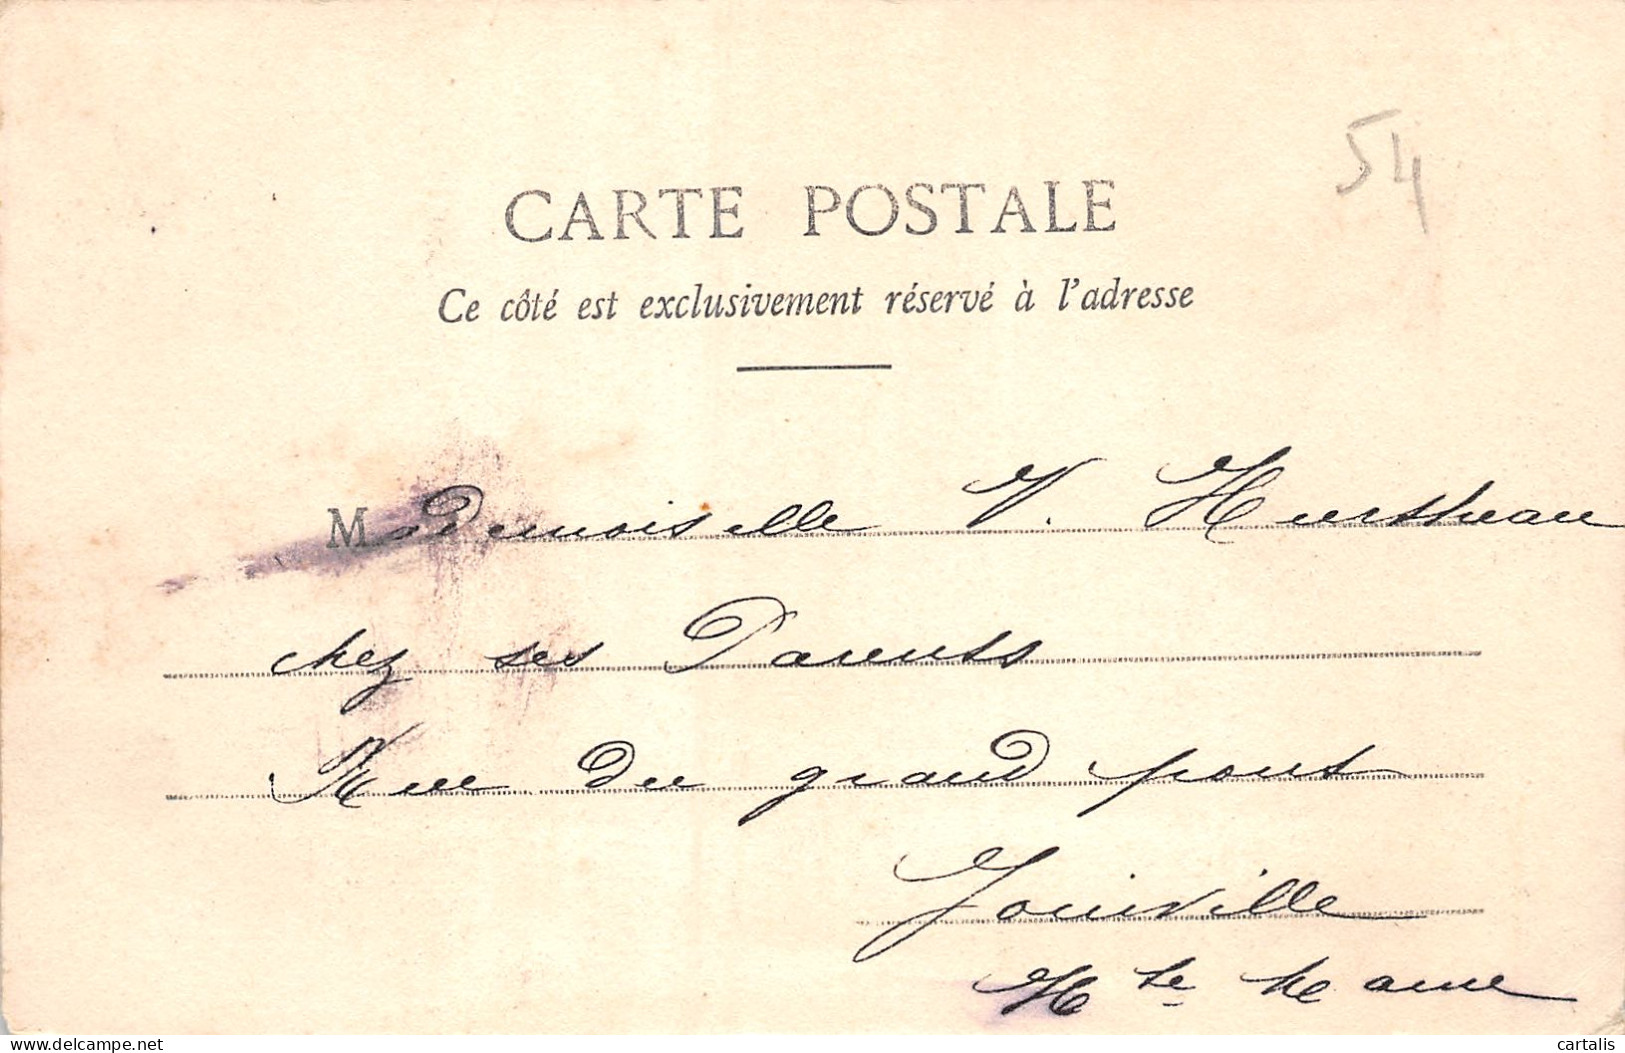 54
CARTE POSTALE
Ce côté est exclusivement réservé à l'adresse
Mademoiselle V.
chez ses Parents
Rue du grand pont
Joinville
Hte Marne
cartalis
delcampe.net